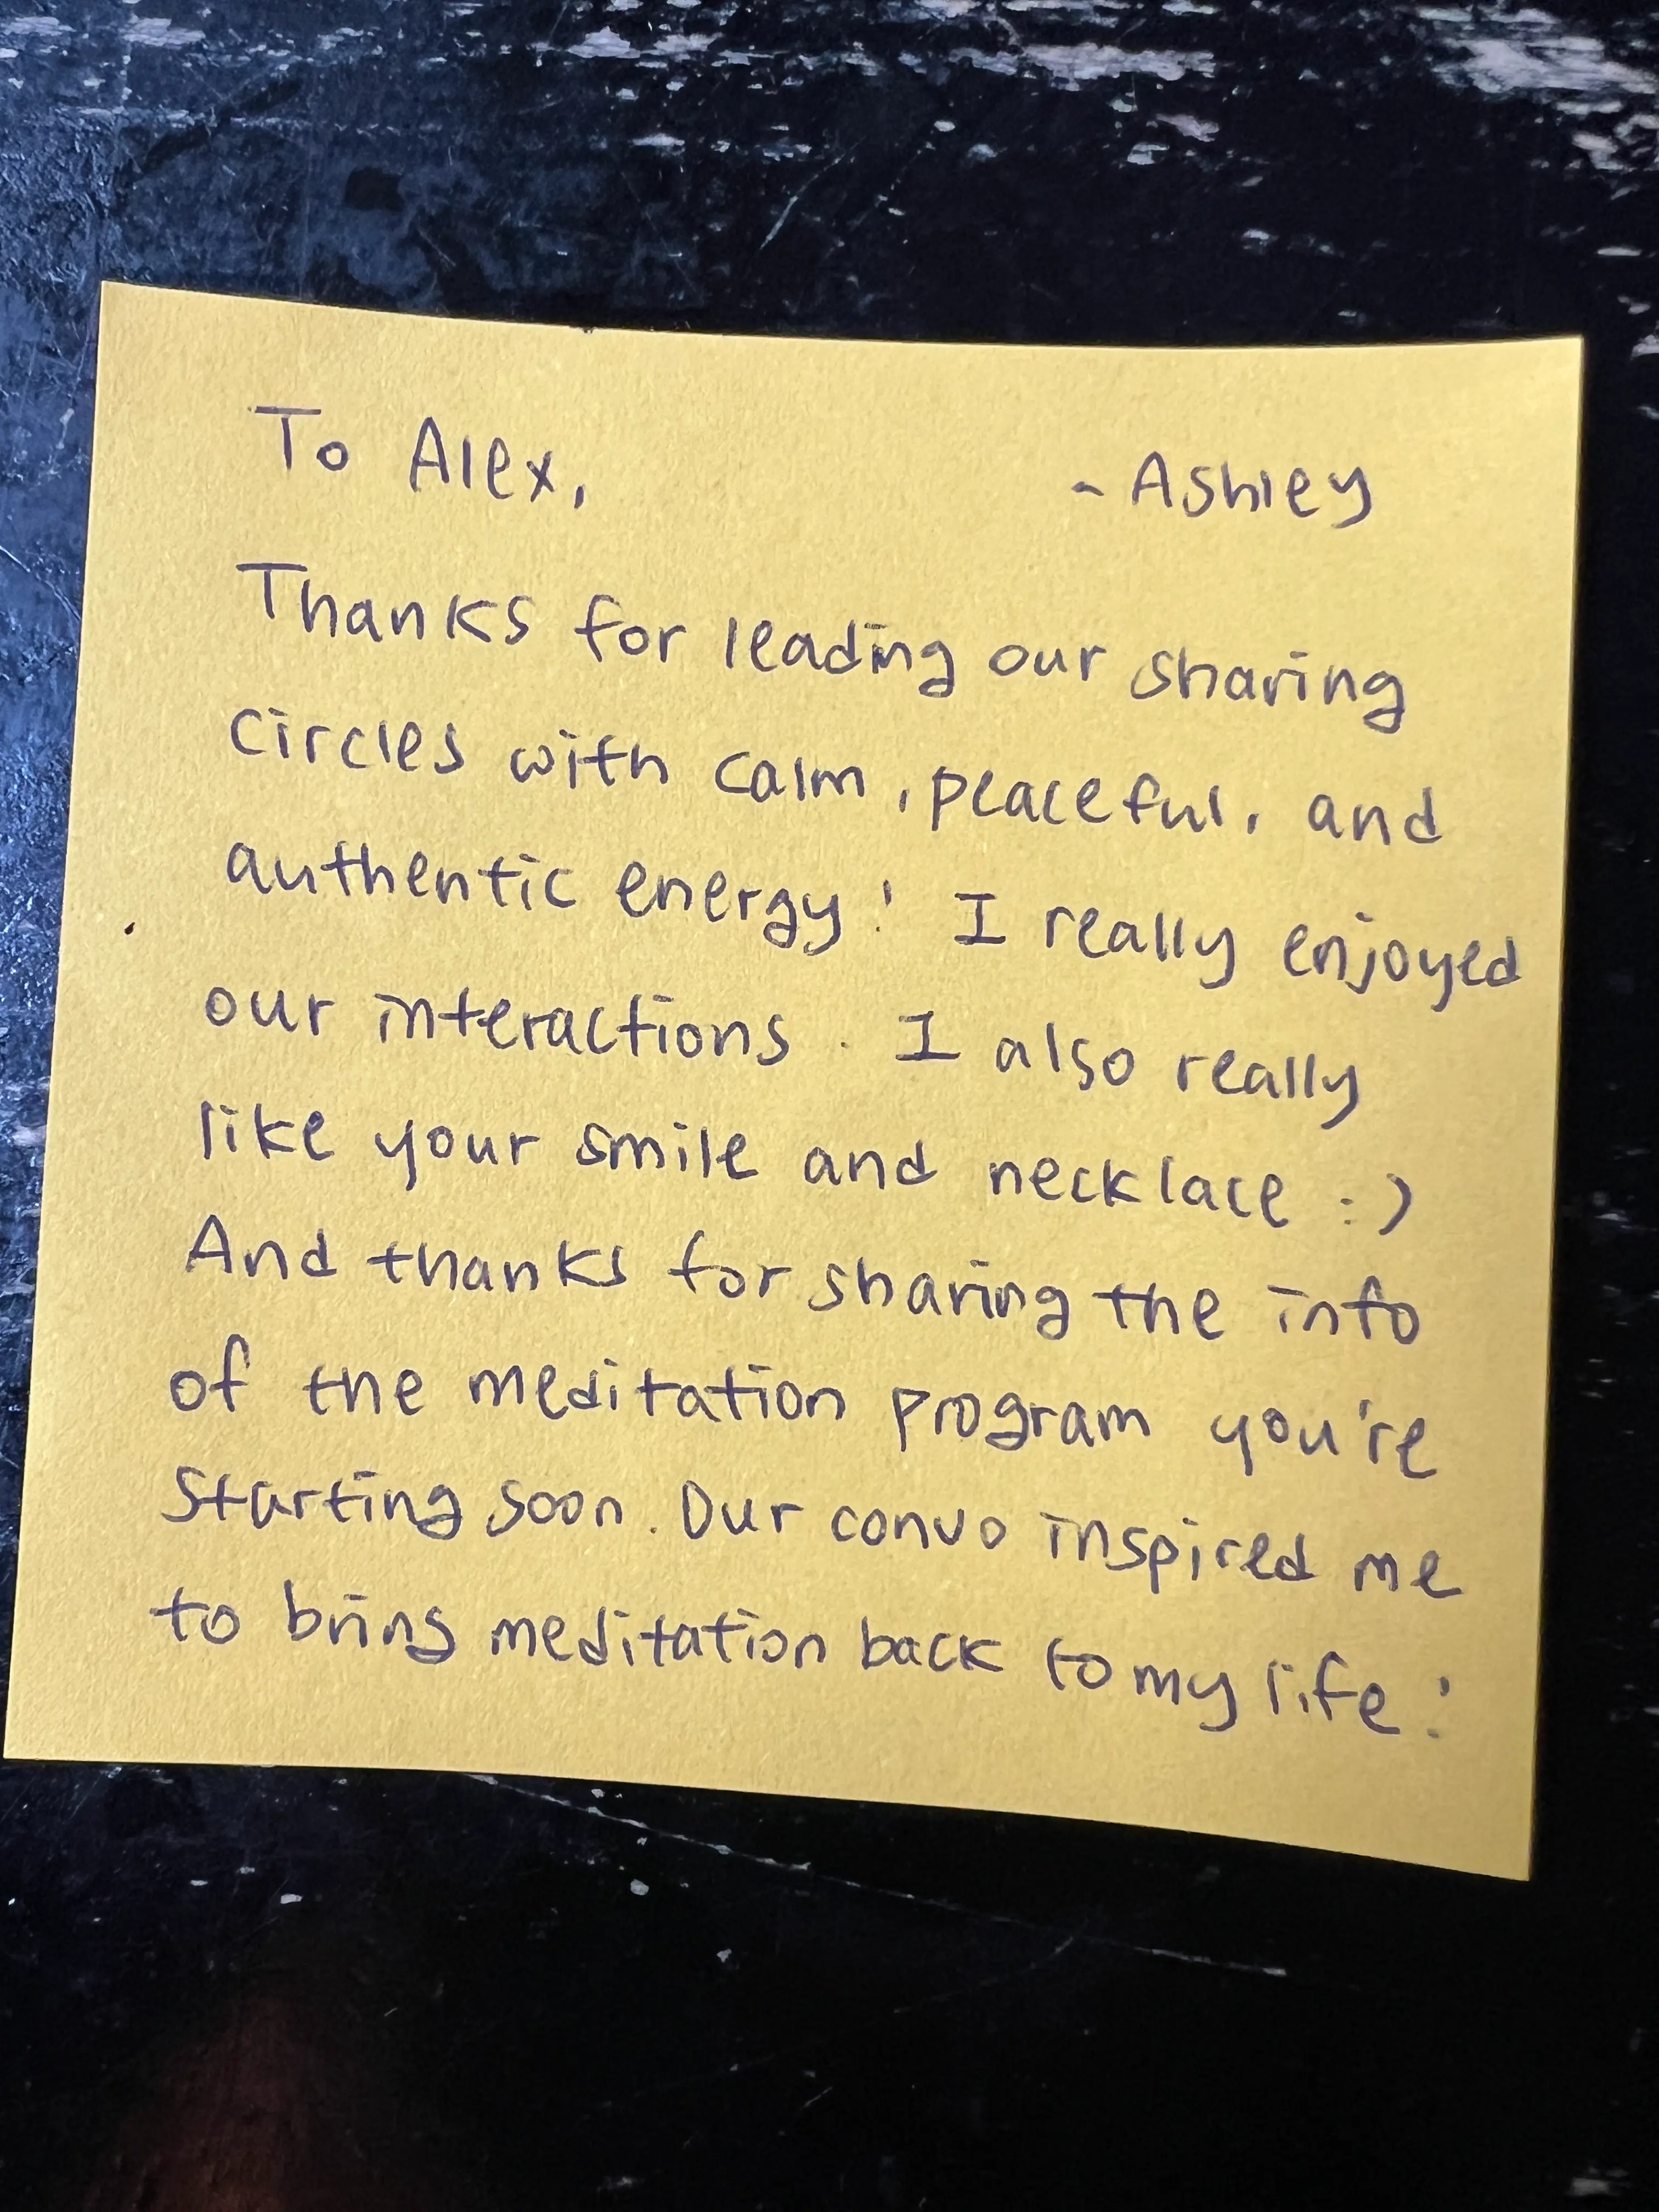 To Alex, - Ashley
Thanks for leading our sharing
circles with calm, peaceful, and
authentic energy! I really enjoyed
our interactions. I also really
like your smile and necklace :)
And thanks for sharing the info
of the meditation program you're
starting soon. Our convo inspired me
to bring meditation back to my life!